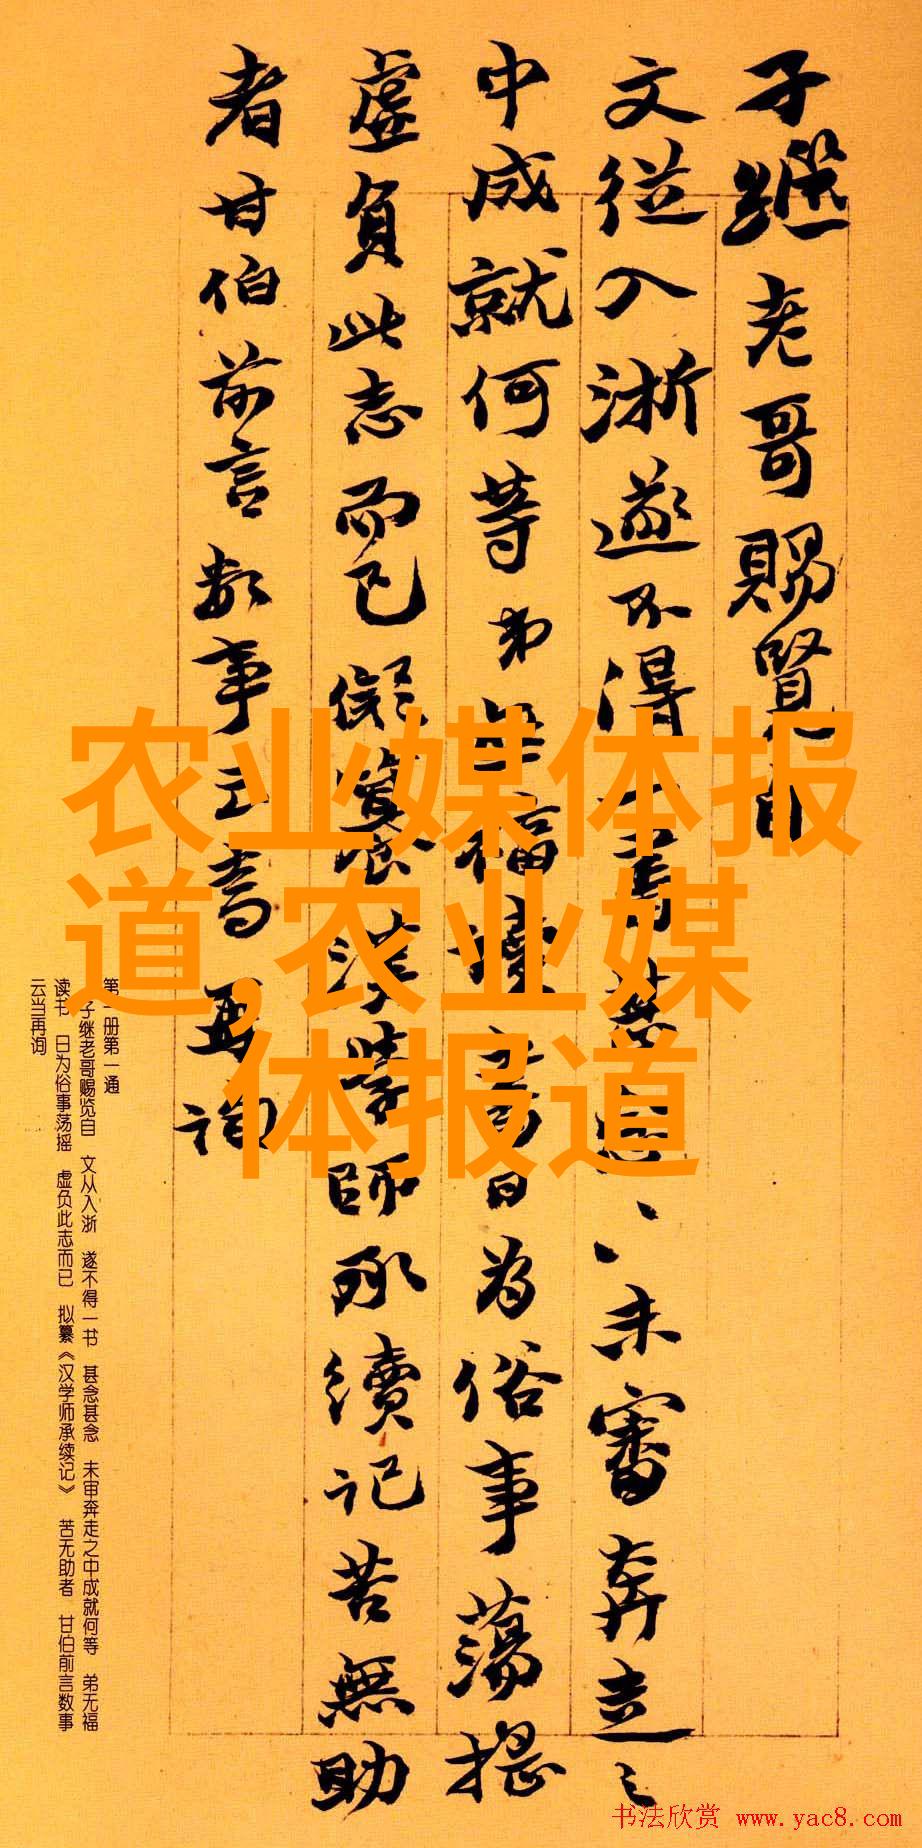 子继老哥赐览自
文從入浙遂不得一書甚念〻未審奔走之
中成就何等弟無福讀書日為俗事蕩摇
虚負此志而已儗纂漢學師承續記苦無助
者甘伯前言数事云當再詢
农业媒体报
道,农业媒
体报道
第一册第一通
子继老哥赐览自 文从入浙 遂不得一书 甚念甚念 未审奔走之中成就何等 弟无福
读书 日为俗事荡摇 虚负此志而已 拟纂《汉学师承续记》 苦无助者 甘伯前言数事
云当再询
书法欣赏 www.yac8.com